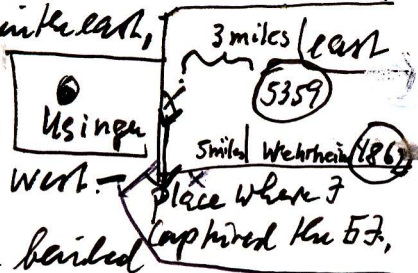 in the east,
3 miles east
5359
Usingen
5 miles Wehrheim 486
west.
Place where I
captured the